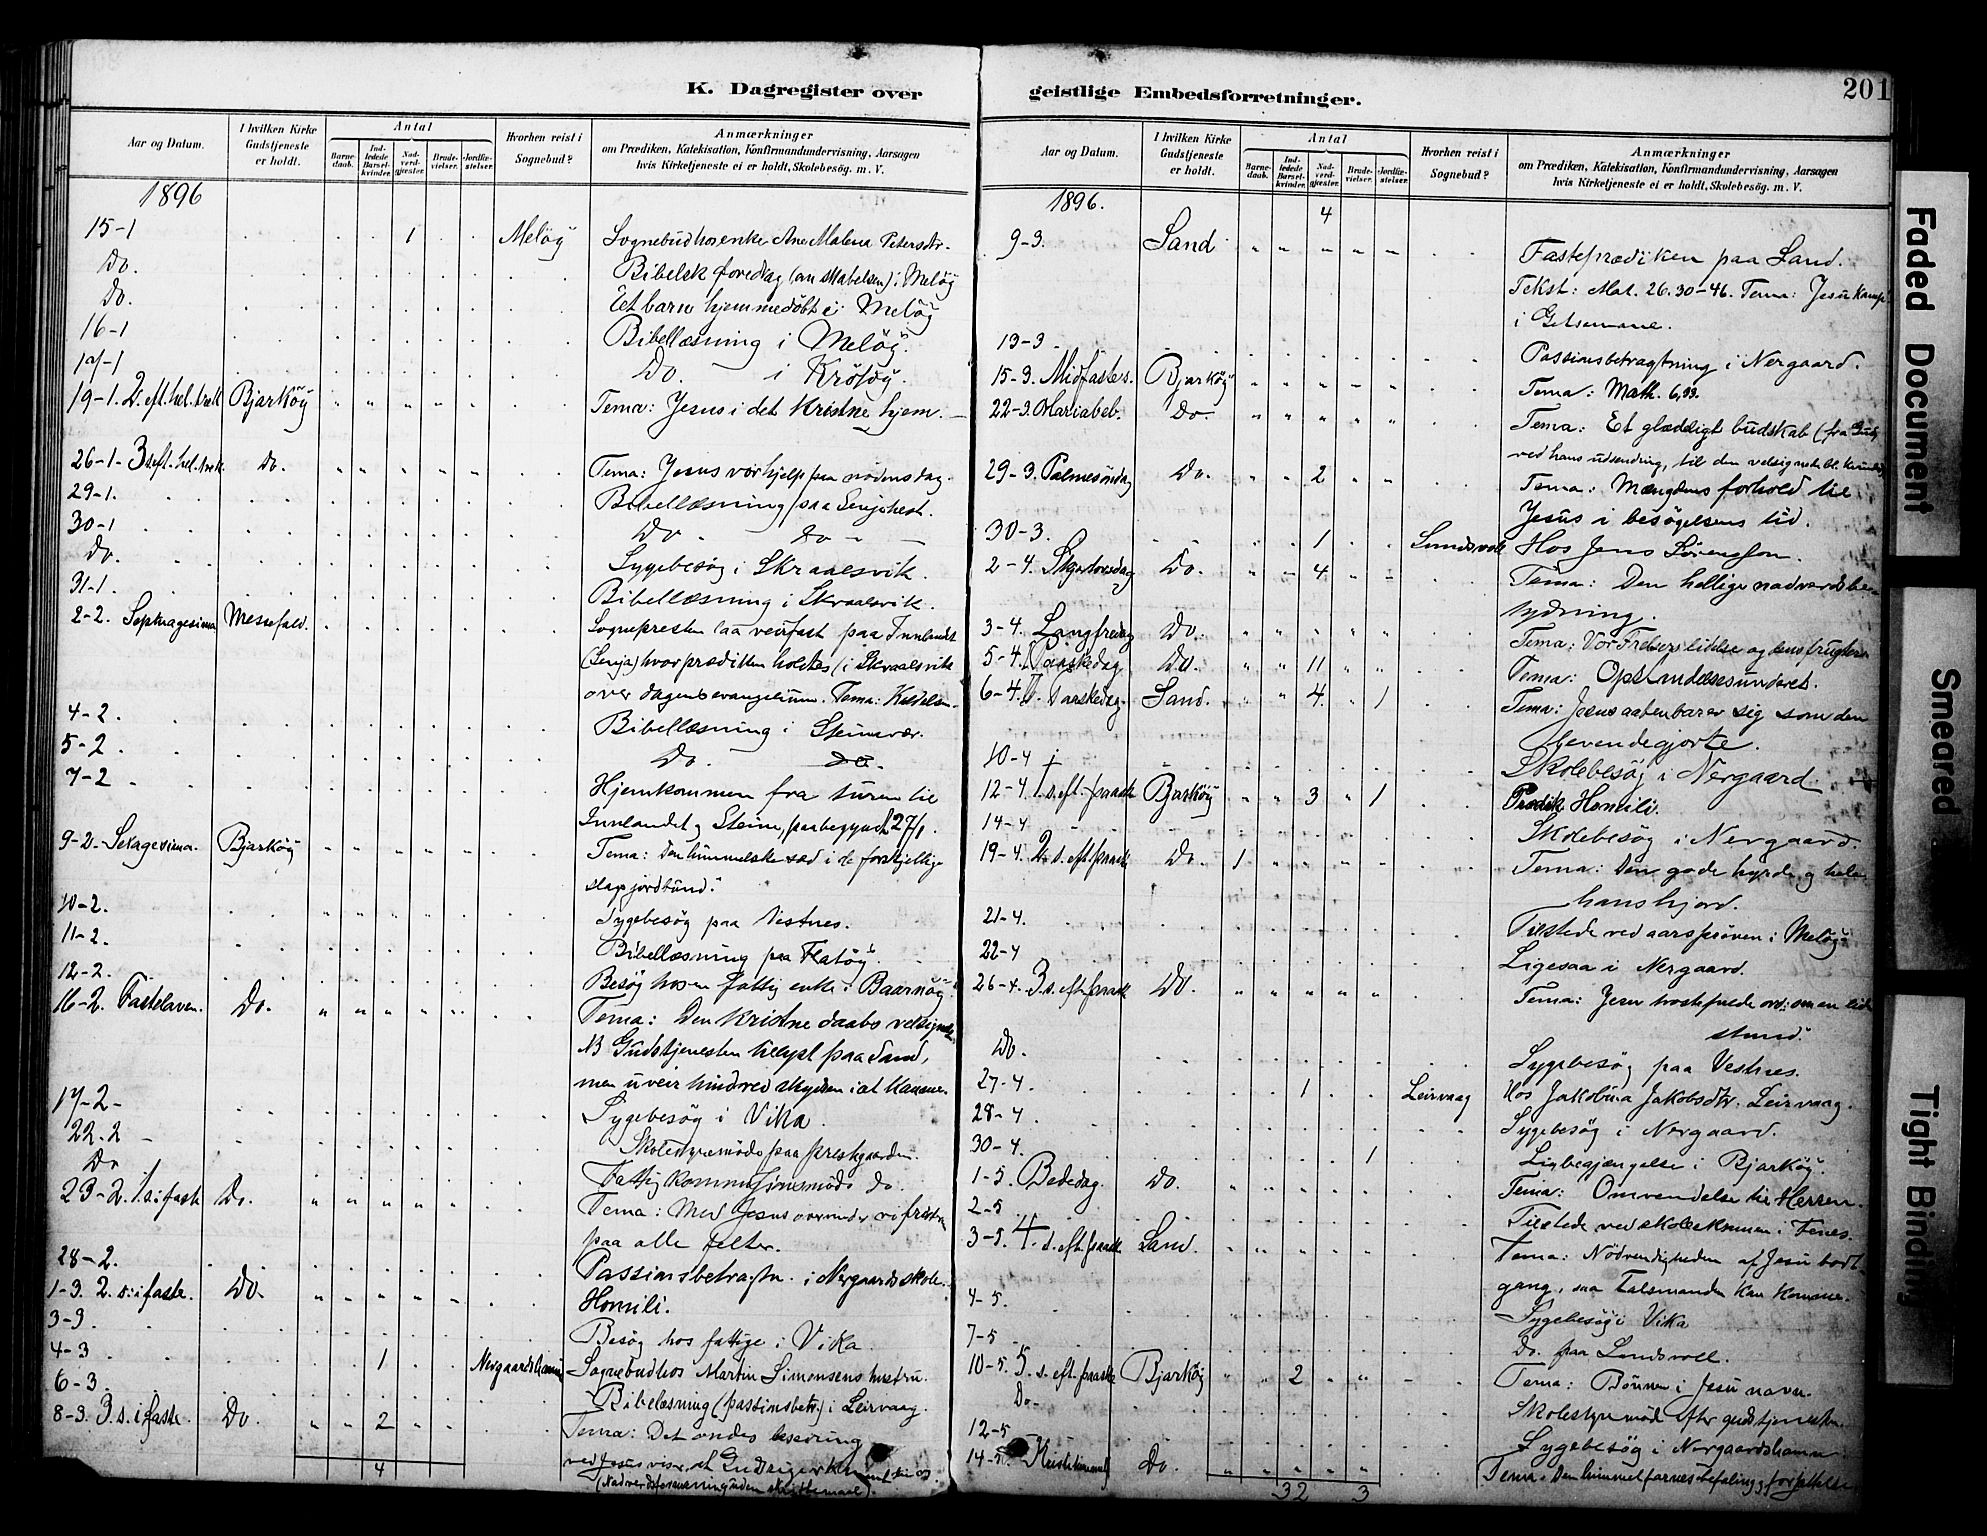 K. Dagregister over
Aar og Datum.
I hvilken Kirke Gudstjeneste er holdt.
Antal
Barnedaab.
Indledede Barselkvinder.
Nadverdgjester.
Brudevielser.
Jordfæstelser.
Hvorhen reist i Sognebud?
Anmærkninger
om Prædiken, Katekisation, Konfirmandundervisning, Aarsagen
hvis Kirketjeneste ei er holdt, Skolebesøg. m. V.
1896
15-1 1 Meløy Sognebud hos enke Ane Malena Petersdtr.
Do. Bibelsk foredrag (om skabelsen) i Meløy
Do. Et barn hjemmedøbt i Meløy
16-1 Bibellæsning i Meløy.
17-1 Do. i Krøtøy.
19-1. 2. s. eft. hel. trek Bjarkøy Tema: Jesus i det kristne hjem.
26-1- 3 s. eft. hel. trek. Do. Tema: Jesus vor hjelp paa nødens dag.
29-1. Bibellæsning paa Senjehest.
30-1 Do - Do -
Do. Sygebesøg i Skraalsvik.
31-1. Bibellæsning i Skraalsvik.
2-2. Septuagesima Messefald. Sognepresten laa veirfast paa Innlandet
(Senja) hvor prædiken holdtes (i Skraalsvik
over dagens evangelium. Tema:
4-2. Bibellæsning i Steinavær.
5-2. Do. Do.
7-2 Hjemkommen fra turen til
Innlandet og Steine, paabegyndt 27/1.
9-2. Sexagesima. Bjarkøy Tema: Den himmelske sæd i de forskjellige
slags jordbund.
10-2. Sygebesøg paa Vestnes.
11-2. Bibellæsning paa Flatøy.
12-2. Besøg hos en fattig enke i Baarnøy.
16-2. Fastelaven. Do. Tema: Den kristne daabs velsignelse
NB Gudstjenesten tillyst paa Sand,
men uveir hindred skydsen i at komme.
17-2- Sygebesøg i Vika.
22.2 - Skolestyremøde paa prestgaarden.
Do Fattigkommissionsmøde Do.
23-2. 1. s. i faste Do. Tema: Med Jesus overvinder vi fristeren
paa alle felter.
28-2. Passionsbetragtn. i Nergaards skole.
1-3. 2. s. i faste. Do. Homili.
3-3. Besøg hos fattige i Vika.
4-3 1 Nergaardshamn Sognebud hos Martin Simonsens hustru.
6-3. Bibelæsning (passionsbetr.) i Leirvaag.
8-3. 3. s. i faste. Do. 2 Tema: Det ondes besæring
ved Jesus viser, at Guds rige er kommet til os.
4 (Nadverdsforberedning uden skriftemaal).
geistlige Embedsforretninger.
201
Aar og Datum.
I hvilken Kirke Gudstjeneste er holdt.
Antal
Barnedaab.
Indledede Barselkvinder.
Nadverdgjester.
Brudevielser.
Jordfæstelser.
Hvorhen reist i Sognebud?
Anmærkninger
om Prædiken, Katekisation, Konfirmandundervisning, Aarsagen
hvis Kirketjeneste ei er holdt, Skolebesøg. m. V.
1896. 4
9-3. Sand Fasteprædiken paa Sand.
Tekst: Mat. 26. 30-46. Tema: Jesu kamp
i Getsemane.
13-3 Passionsbetragtning i Nergaard.
15-3. Midfastes. Bjarkøy Tema: Matth. 6,33.
22-3. Mariabeb. Do. Tema: Et glædeligt budskab (fra Gud,
ved hans udsending, til den velsignede bl. kvinder
29-3. Palmesøndag Do. 2 Tema: Mængdens forhold til
Jesus i besøgelsens tid.
30-3. 1 Sundsvoll Hos Jens Sørensen.
2-4. Skjærtorsdag Do. 4 Tema: Den hellige nadverds be-
tydning.
3-4. Langfredag Do. Tema: Vor Frelsers lidelse og dens frugter.
5-4. 1. Paaskedag. Do. 11 Tema: Opstandelsesunderet.
6-4. 2. Paaskedag. Sand. 4 1 Tema: Jesus aabenbarer sig som den
levendegjorte.
10-4 Skolebesøg i Nergaard
12-4. 1. s. eft. paaske Bjarkøy 3 1 Prædik. Homili.
14-4 Skolebesøg i Nergaard.
19-4. 2. s. eft. paaske Do. 1 Tema: Den gode hyrde og hele
hans hjord.
21-4. Tilstede ved aarsprøven i Meløy
22-4 Ligesaa i Nergaard.
26-4. 3 s. eft. paaske Do. Tema: Jesu trostefulde ord: om en liden
stund.
Do. Sygebesøg paa Vestnes.
27-4. 1 Leirvaag Hos Jakobina Jakobsdtr. Leirvaag.
28-4 Sygebesøg i Nergaard.
30-4. 1 Ligbegjængelse i Bjarkøy.
1-5. Bededag. Do. Tema: Omvendelse til Herren.
2-5 Tilstede ved skoleeksamen i Fenes.
3-5. 4. s. eft. paaske Sand. Tema: Nødvendigheden af Jesu bort-
gang, saa Talsmanden kan komme.
4-5. Sygebesøg i Vika
7-5 Do. paa Sundsvoll.
10-5. 5. s. eft. paaske Bjarkøy 2 Tema: Bønnen i Jesu navn.
Do. Skolestyremøde efter gudstjenesten.
12-5 Sygebesøg i Nergaardshamn
14-5. Kristi himmelf. Do. Tema: Den himmelfarnes befaling og forjættelse
32 3
Faded Document
Smeared
Tight Binding